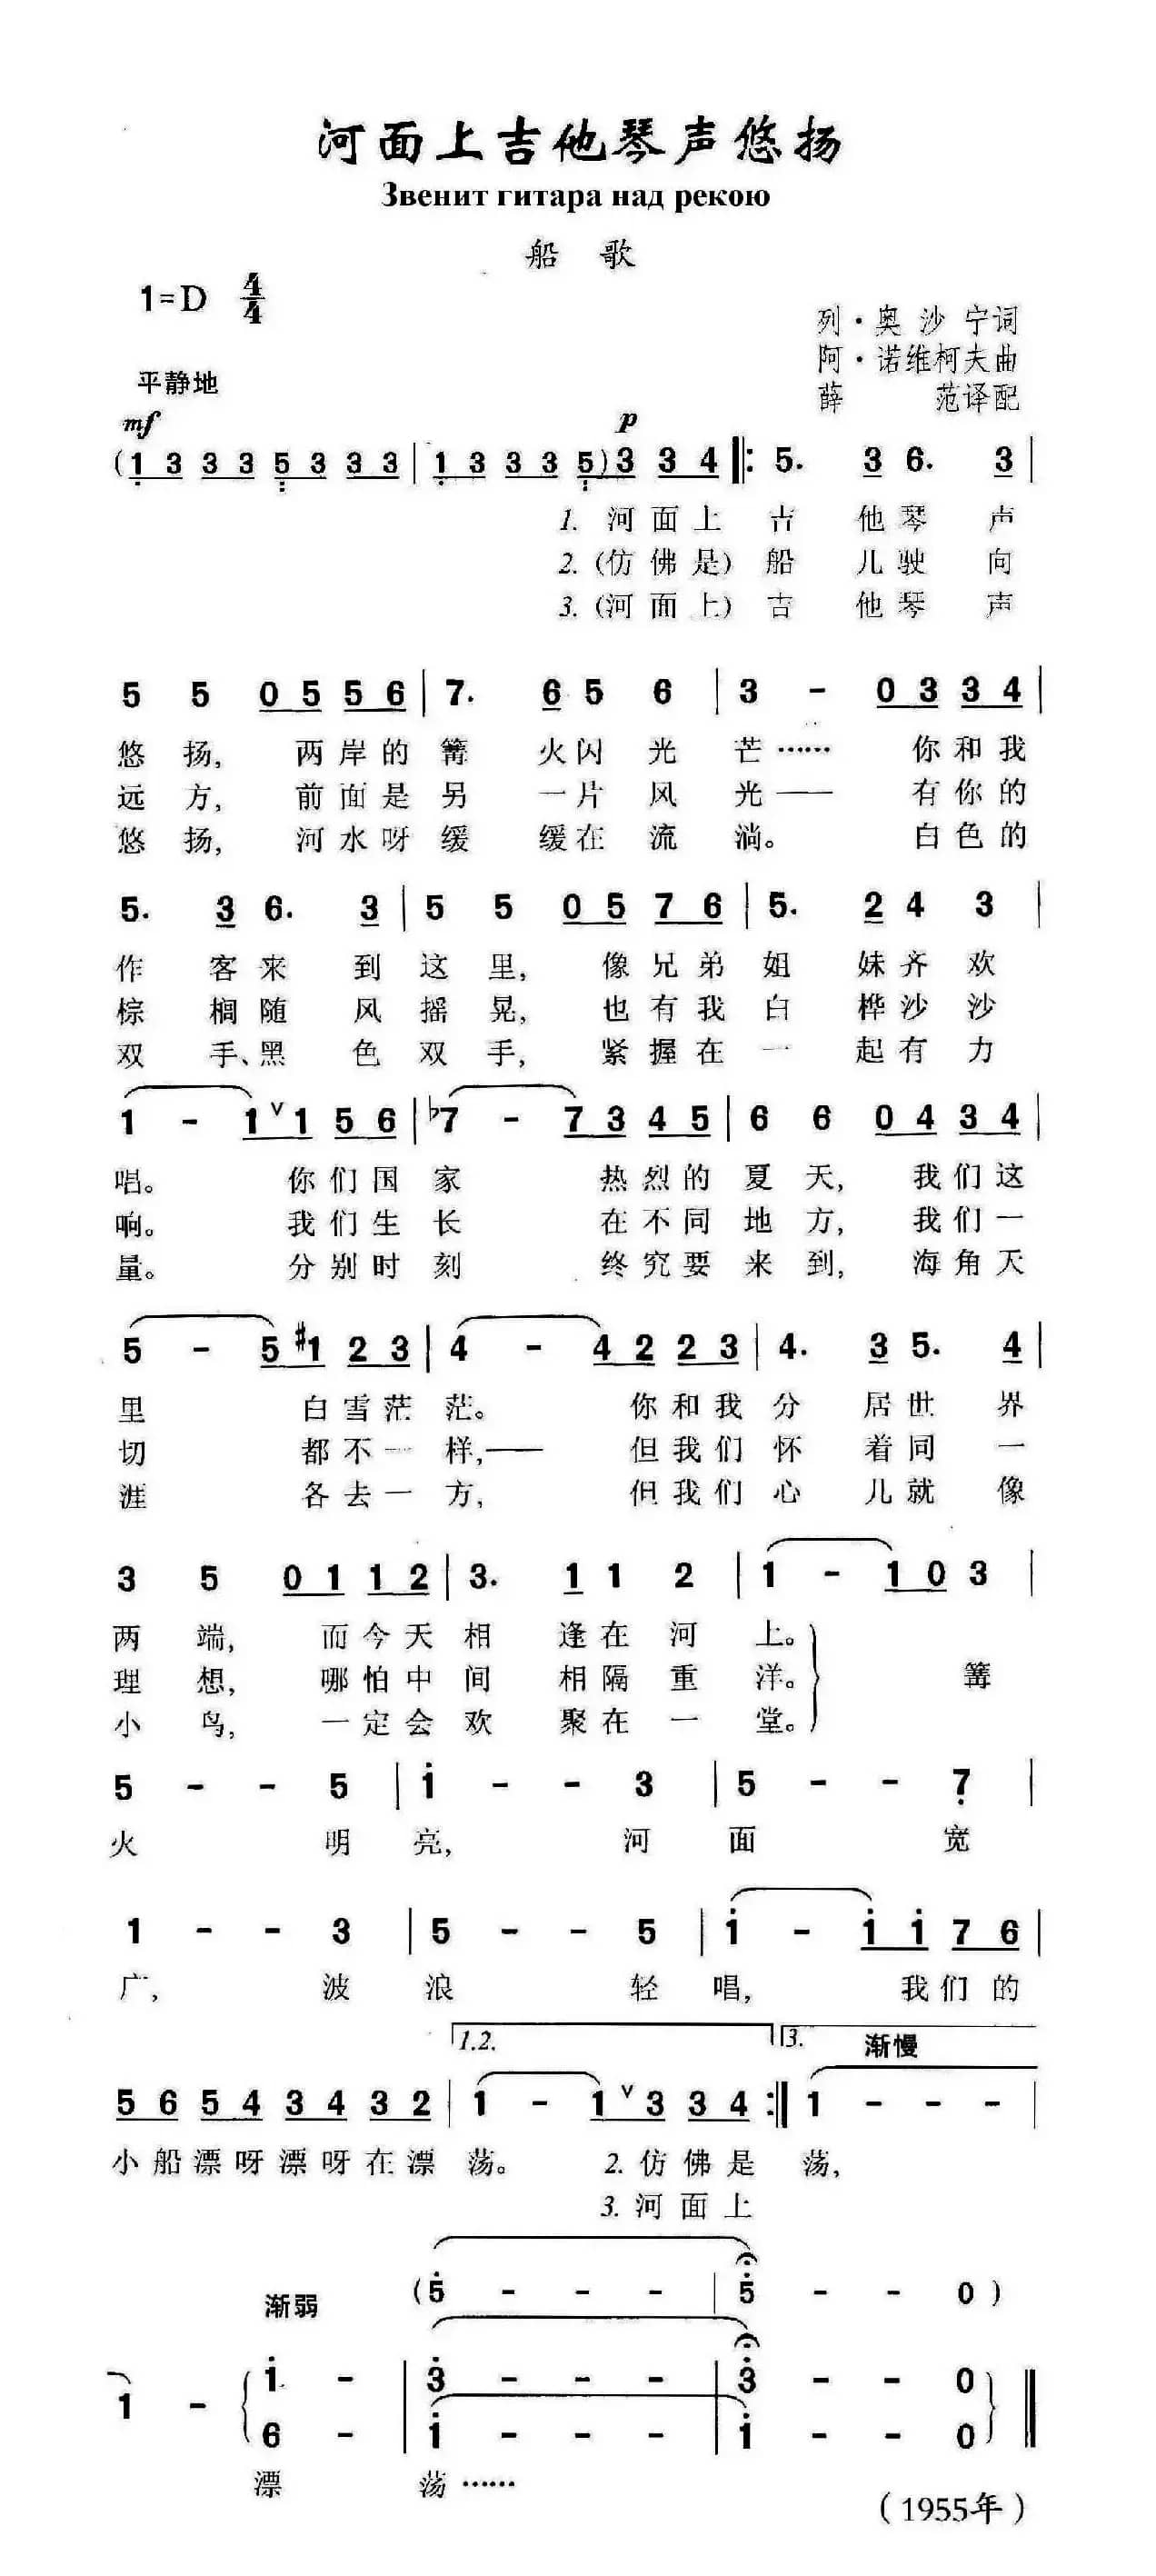 河面上吉他琴声悠扬
Звенит гитара над рекою
船 歌
1=D 4/4
列·奥沙宁词
阿·诺维柯夫曲
薛 范译配
平静地
mf p
(1 3 3 3 5 3 3 3 | 1 3 3 3 5) 3 3 4 ‖: 5. 3 6. 3 |
1. 河面上 吉 他琴 声
2. (仿佛是) 船 儿驶 向
3. (河面上) 吉 他琴 声
5 5 0 5 5 6 | 7. 6 5 6 | 3 - 0 3 3 4 |
悠 扬, 两岸的 篝 火闪 光 芒…… 你和我
远 方, 前面是 另 一片 风 光—— 有你的
悠 扬, 河水呀 缓 缓在 流 淌。 白色的
5. 3 6. 3 | 5 5 0 5 7 6 | 5. 2 4 3 |
作 客来 到 这 里, 像兄弟 姐 妹齐 欢
棕 榈随 风 摇 晃, 也有我 白 桦沙 沙
双 手、黑 色 双 手, 紧握在 一 起有 力
1 - 1 ∨ 1 5 6 | ♭7 - 7 3 4 5 | 6 6 0 4 3 4 |
唱。 你们国 家 热烈的 夏 天, 我们这
响。 我们生 长 在不同 地 方, 我们一
量。 分别时 刻 终究要 来 到, 海角天
5 - 5 #1 2 3 | 4 - 4 2 2 3 | 4. 3 5. 4 |
里 白雪茫 茫。 你和我 分 居世 界
切 都不一 样,—— 但我们 怀 着同 一
涯 各去一 方, 但我们 心 儿就 像
3 5 0 1 1 2 | 3. 1 1 2 | 1 - 1 0 3 |
两 端, 而今天 相 逢在 河 上。
理 想, 哪怕中 间 相隔 重 洋。 篝
小 鸟, 一定会 欢 聚在 一 堂。
5 - - 5 | i - - 3 | 5 - - 7 |
火 明 亮, 河 面 宽
1 - - 3 | 5 - - 5 | i - i i 7 6 |
广, 波 浪 轻 唱, 我们的
1.2. 3. 渐慢
5 6 5 4 3 4 3 2 | 1 - 1 ∨ 3 3 4 :‖ 1 - - - |
小船漂呀漂呀在漂 荡。 2. 仿佛是 荡,
3. 河面上
渐弱 (5 - - - | 5 - - 0)
1 - i - | 3 - - - | 3 - - 0
6 - | i - - - | i - - 0 ‖
漂 荡……
(1955年)